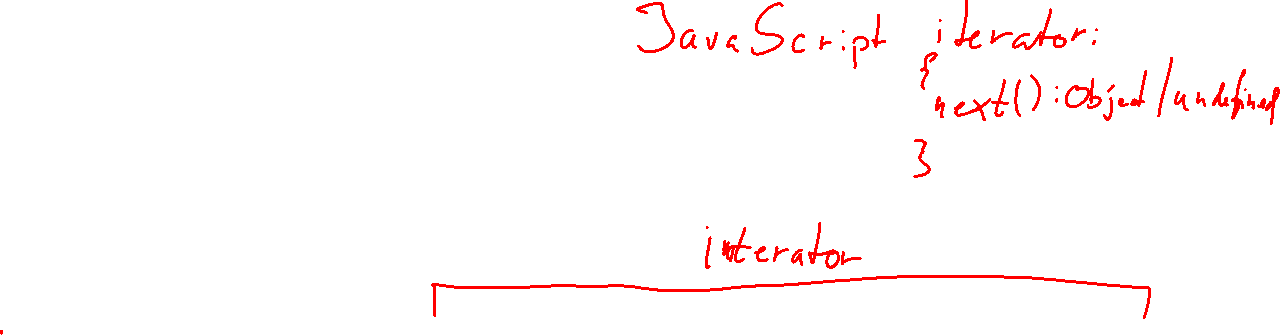 JavaScript iterator:
{
next(): Object/undefined
}
iterator